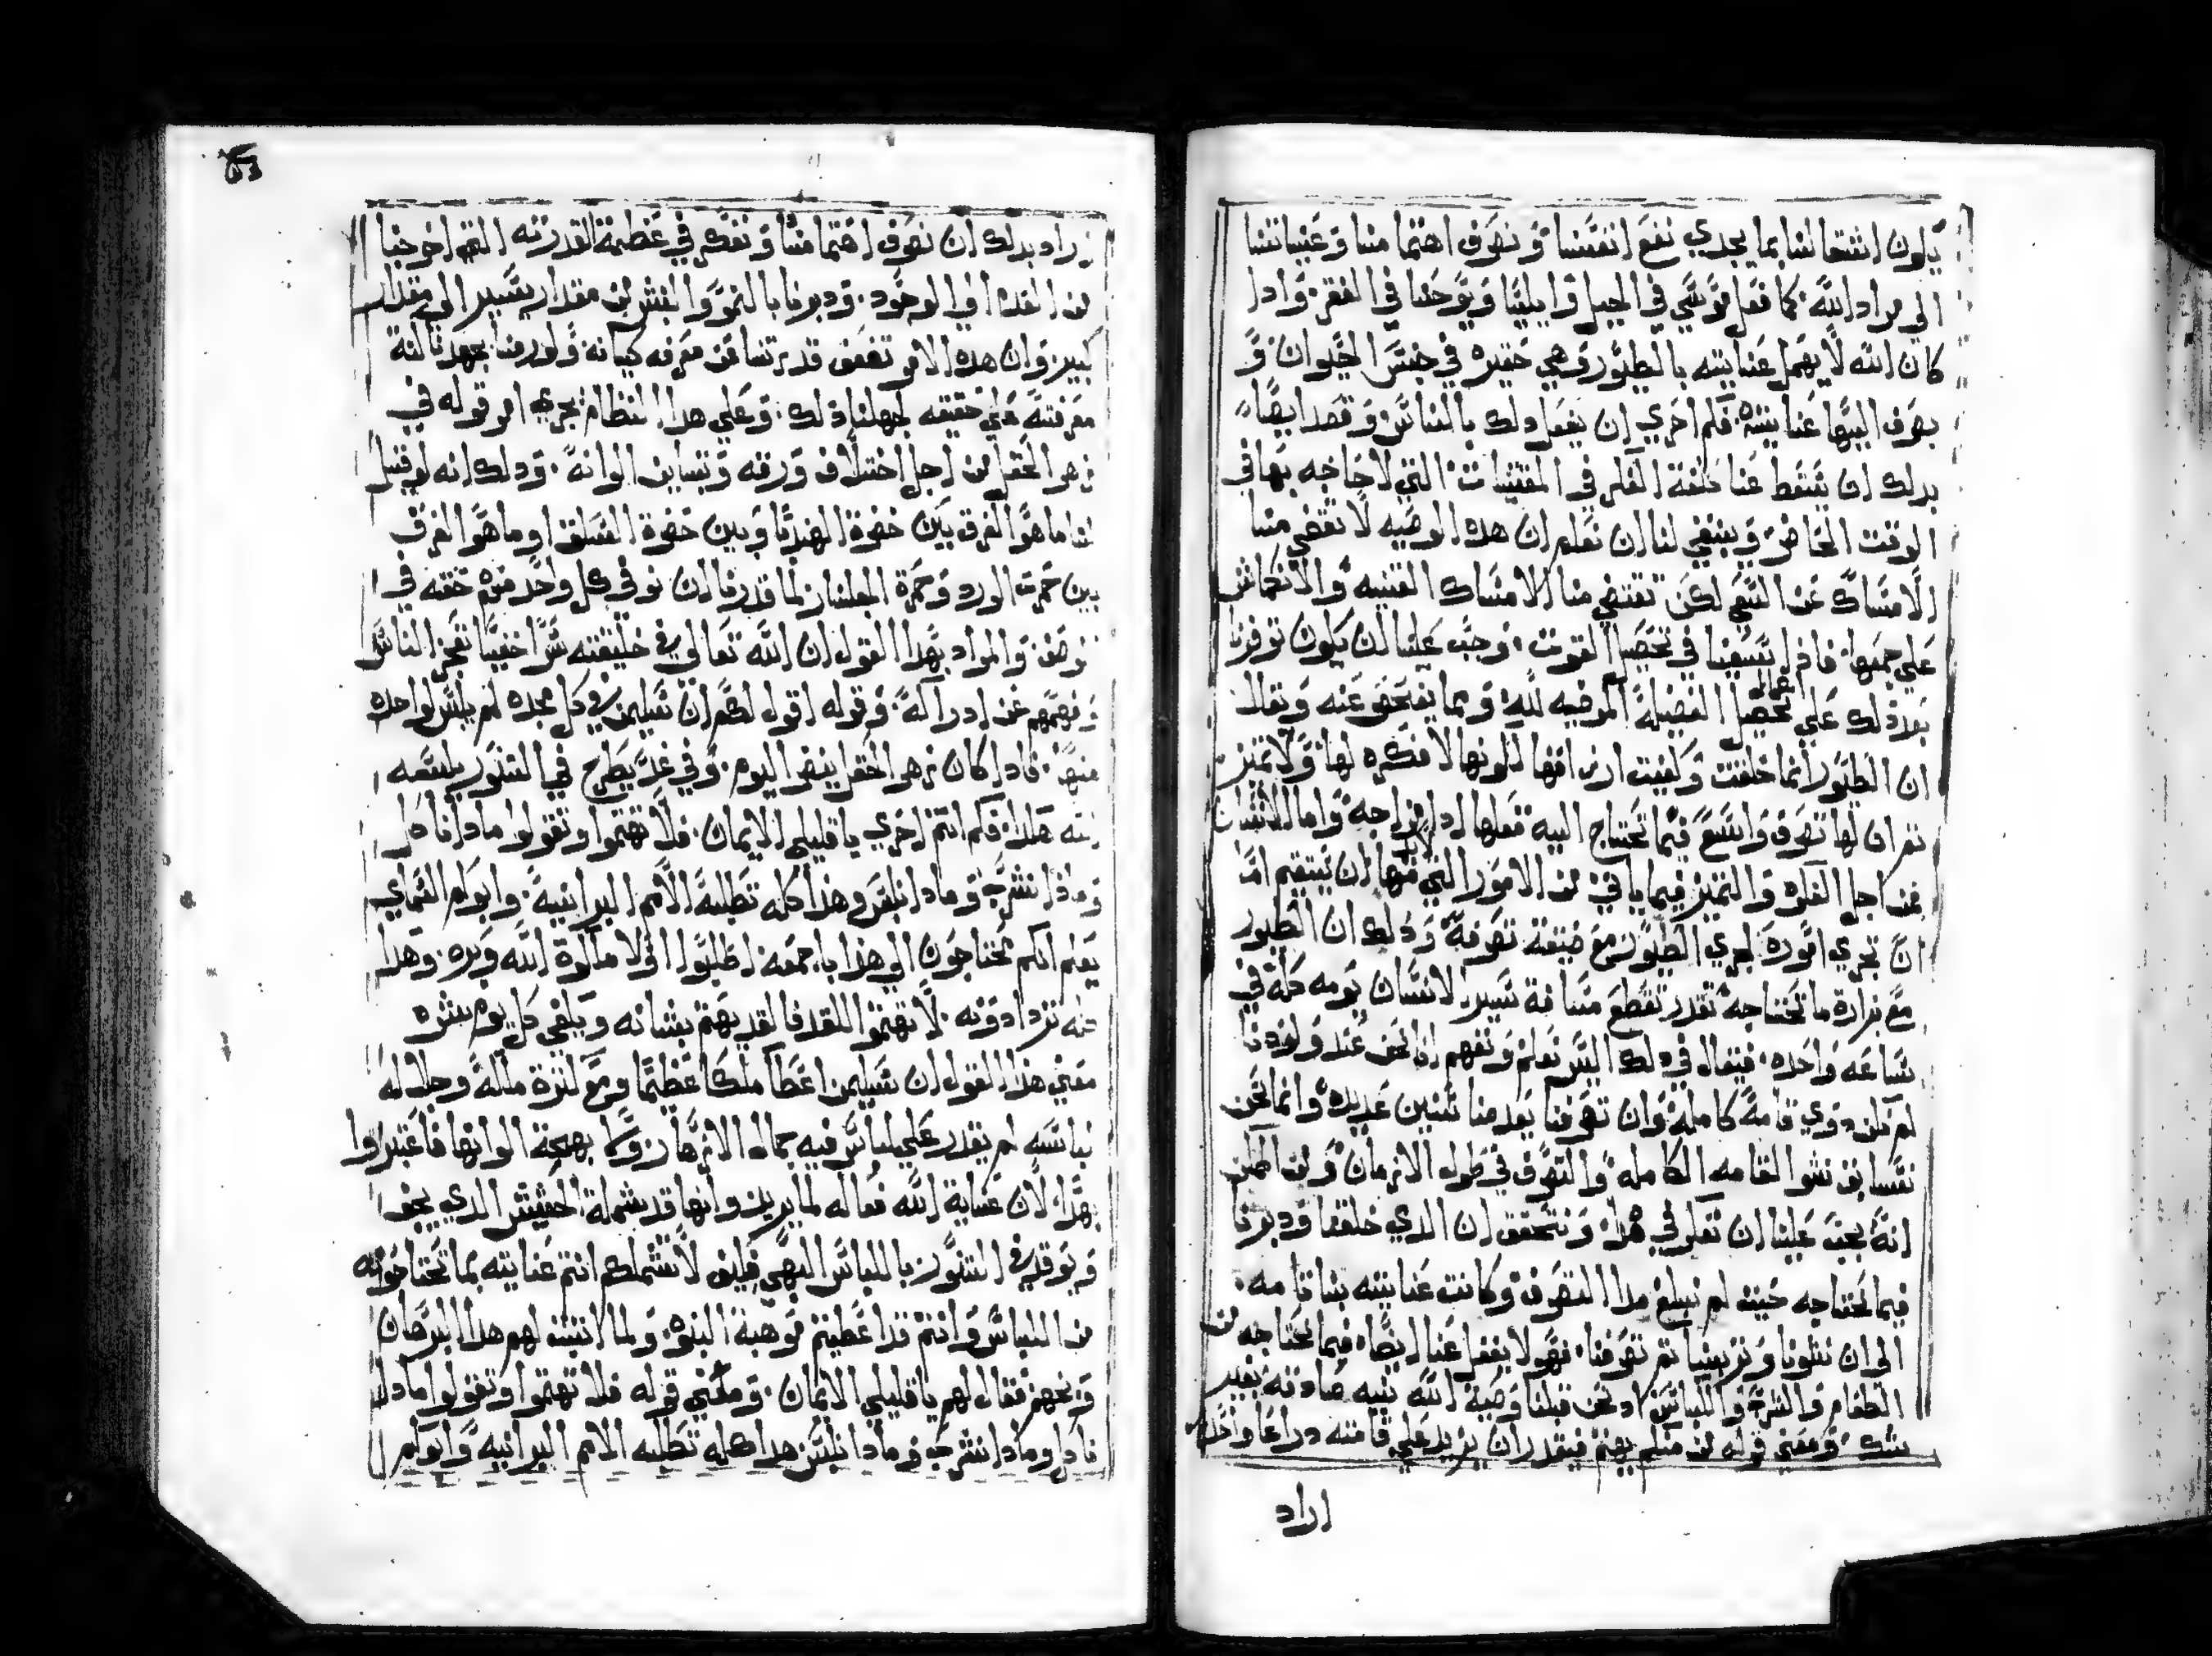 يكون اشتغالنا بما يجدي نفع انفسنا ونصرف اهتمامنا وعنايتنا
الي مراد الله كما فعل موسي في الجبل وايليا ويوحنا في القفر وادا
كان الله لا يهمل عنايته بالطيور وهي حقيره في جنس الحيوان و
يصرف اليها عنايته فكم احري ان يفعل دلك بالناس وقصد ايضا
بدلك ان يسقط عنا كلفة الهم في المقتنيات التي لا حاجه بها في
الوقت الحاضر وينبغي لنا ان نعلم ان هده الوصيه لا تقضي منا
الامساك عن السعي لكن تقتضي منا الامساك القنيه والانكماش
علي جمعها فاذا تسعنا في تحصيل القوت وجب علينا ان يكون توفرنا
بعد ذلك علي تحصيل الفضيلة المرضيه لله ومما يفحص عنه ويقال
ان الطيور انما خلقت وكفيت ارزاقها لكونها لا فكره لها ولا تمييز
نعم ان لها تصرف واتسع فيما تحتاج اليه فعلها ادا مزاجه واما الانسان
فمن اجل الفكره والتمييز فيما ياتي من الامور التي منها ان يستقيم اما
ان تجري اموره كمجري الطيور مع ضيقة تصرفه ودلك ان الطيور
مع نزارة ما تحتاجه تقدر تقطع مسافة تسير الانسان يومه كله في
ساعه واحده فيقال في دلك اليس نعلم ونفهم اننا نحن عند ولودنا
لم نكن دوي قامة كاملة وان تصرفنا بعد منا سنين عديده وانما نحن
نتسابق نشوا القامه الكامله والتصرف في طول الازمان ومن الممكن
انه يجب علينا ان نفكر في هدا ونتحقق ان الدي خلقنا ودبرنا
فيما نحتاجه حيث لم نبلغ هدا التصرف وكانت عنايته بنا تامه
الي ان نشونا وتربينا ثم تصرفنا فهو لا يغفل عنا ايضا فيما نحتاجه من
الطعام والشرب واللباس اد نحن قبلنا وصية الله بنيه صادقه بغير
شك ومعني قوله من منكم يهتم فيقدر ان يزيد علي قامته دراعا واحدا
اراد
اراد بدلك ان نصرف اهتمامنا ونفكر في عظمة القدرته التي اخرجنا
من العدم الي الوجود ودبرنا بالنمو والنشو من مقدار يسير الي مقدار
كبير وان هده الامر تضعف قدرتنا عن معرفه كيانه ولو رمنا بجهدنا
معرفته علي حقيقه لجهلنا ذلك وعلي هدا النظام يجري امر قوله في
زهر الحقل من اجل اختلاف ورقه وتباين الوانه ودلك انه لو قيل
لنا ما هو الفرق بين خضرة الهندبا وبين خضرة السلق او ما هو الفرق
بين حمرت الورد وحمرة الجلنار لما قدرنا ان نوفي كل واحد منهم حقه في
الوصف والمراد بهدا القول ان الله تعالي في خليقته سرا خفيا تعجز الناس
وفهمهم عن ادراكه وقوله اقول لكم ان سليمن في كل مجده لم يلبس كواحده
منها فادا كان زهر الحقل ينضر اليوم وفي غد يطرح في التنور يلبسه
الله هكدا فكم انتم احري يا قليلي الايمان فلا تهتموا وتقولوا مادا ناكل
وماذا نشرب ومادا نلبس وهذا كله تطلبه الامم البرانية وابوكم السماي
يعلم انكم تحتاجون الي هذا باجمعه اطلبوا اولا ملكوت الله وبره وهدا
كله تزدادونه لا تهتموا للغد فالغد يهتم بشانه ويكفي كل يوم شره
معني هذا القول ان سليمن اعطا ملكا عظيما ومع كثرة ملكه وجلاله
لباسه لم يقدر علي لباس فيه جمال الازهار وكا بهجة الوانها فاعتبروا
بهدا لان عناية الله فعاله لما يريد وانها قد شملة الحشيش الدي يجف
ويوقد في التنور باللباس البهي فكيف لا تشملكم انتم عنايته بما تحتاجونه
من اللباس وانتم قد اعطيتم موهبة البنوه ولما اثبت لهم هدا البرهان
وبخهم فقال لهم يا قليلي الايمان ومعني قوله فلا تهتموا وتقولوا مادا
ناكل ومادا نشرب ومادا نلبس هدا كله تطلبه الامم البرانيه وابوكم